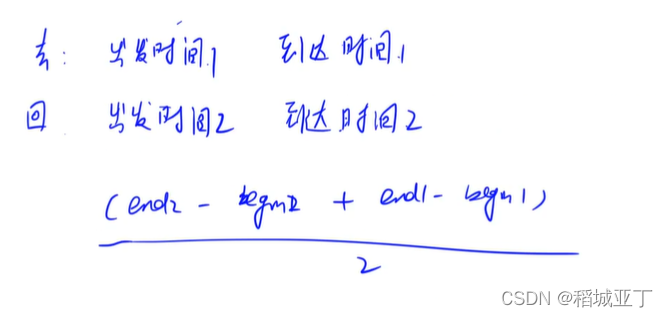 去: 出发时间1 到达时间1
回 出发时间2 到达时间2
(end2 - begin2 + end1 - begin1)
2
CSDN @稻城亚丁